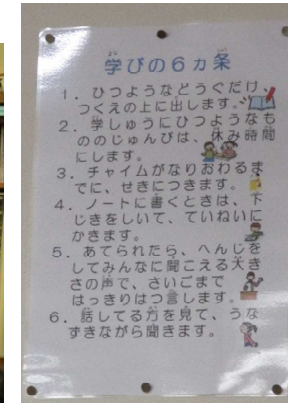 学びの6ヵ条
1．ひつようなどうぐだけ、
つくえの上に出します。
2．学しゅうにひつようなも
ののじゅんびは、休み時間
にします。
3．チャイムがなりおわるま
でに、せきにつきます。
4．ノートに書くときは、下
じきをしいて、ていねいに
かきます。
5．あてられたら、へんじを
してみんなに聞こえる大き
さの声で、さいごまで
はっきりはつ言します。
6．話してる方を見て、うな
ずきながら聞きます。